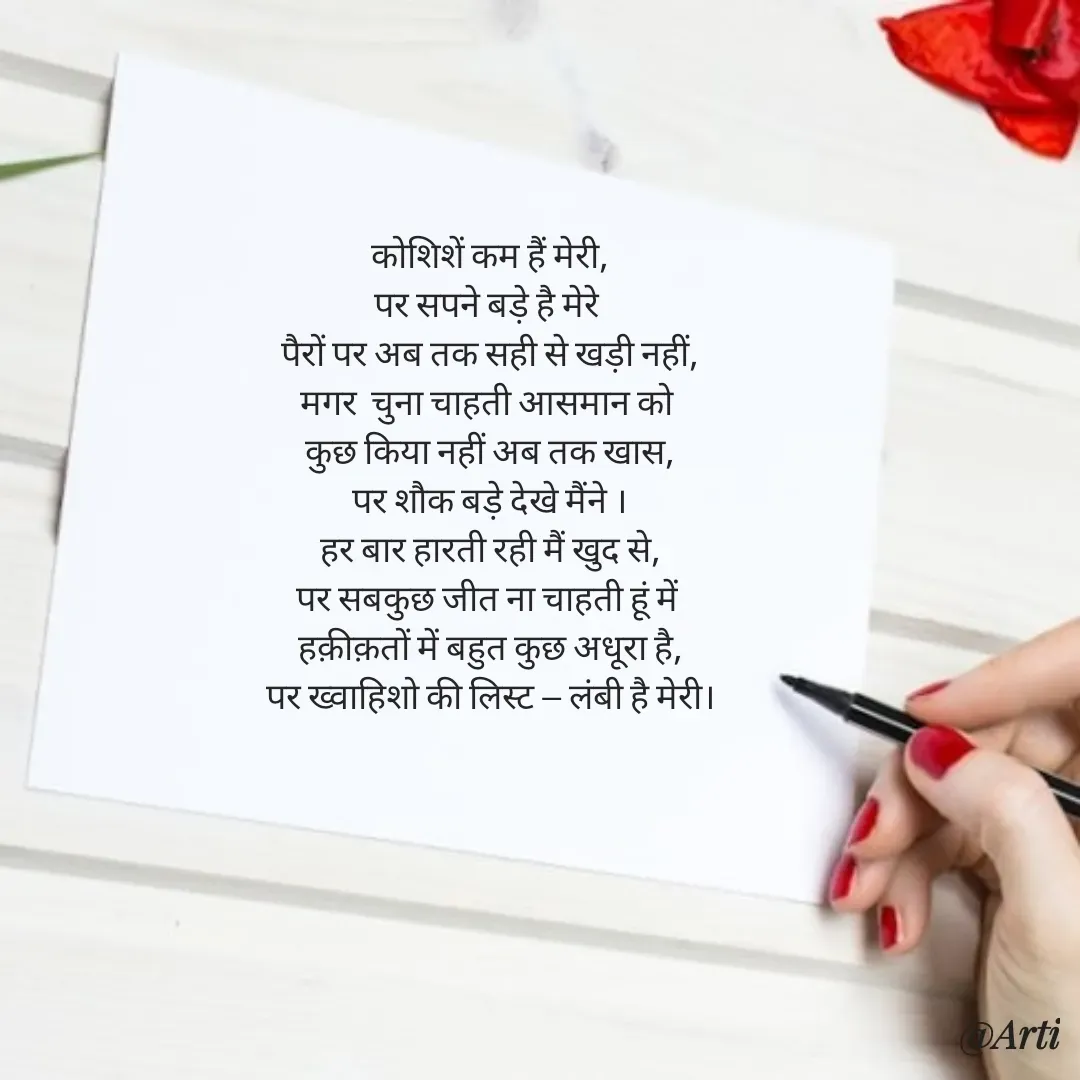 कोशिशें कम हैं मेरी,
पर सपने बड़े है मेरे
पैरों पर अब तक सही से खड़ी नहीं,
मगर  चुना चाहती आसमान को
कुछ किया नहीं अब तक खास,
पर शौक बड़े देखे मैंने ।
हर बार हारती रही मैं खुद से,
पर सबकुछ जीत ना चाहती हूं में
हक़ीक़तों में बहुत कुछ अधूरा है,
पर ख्वाहिशो की लिस्ट – लंबी है मेरी।
@Arti